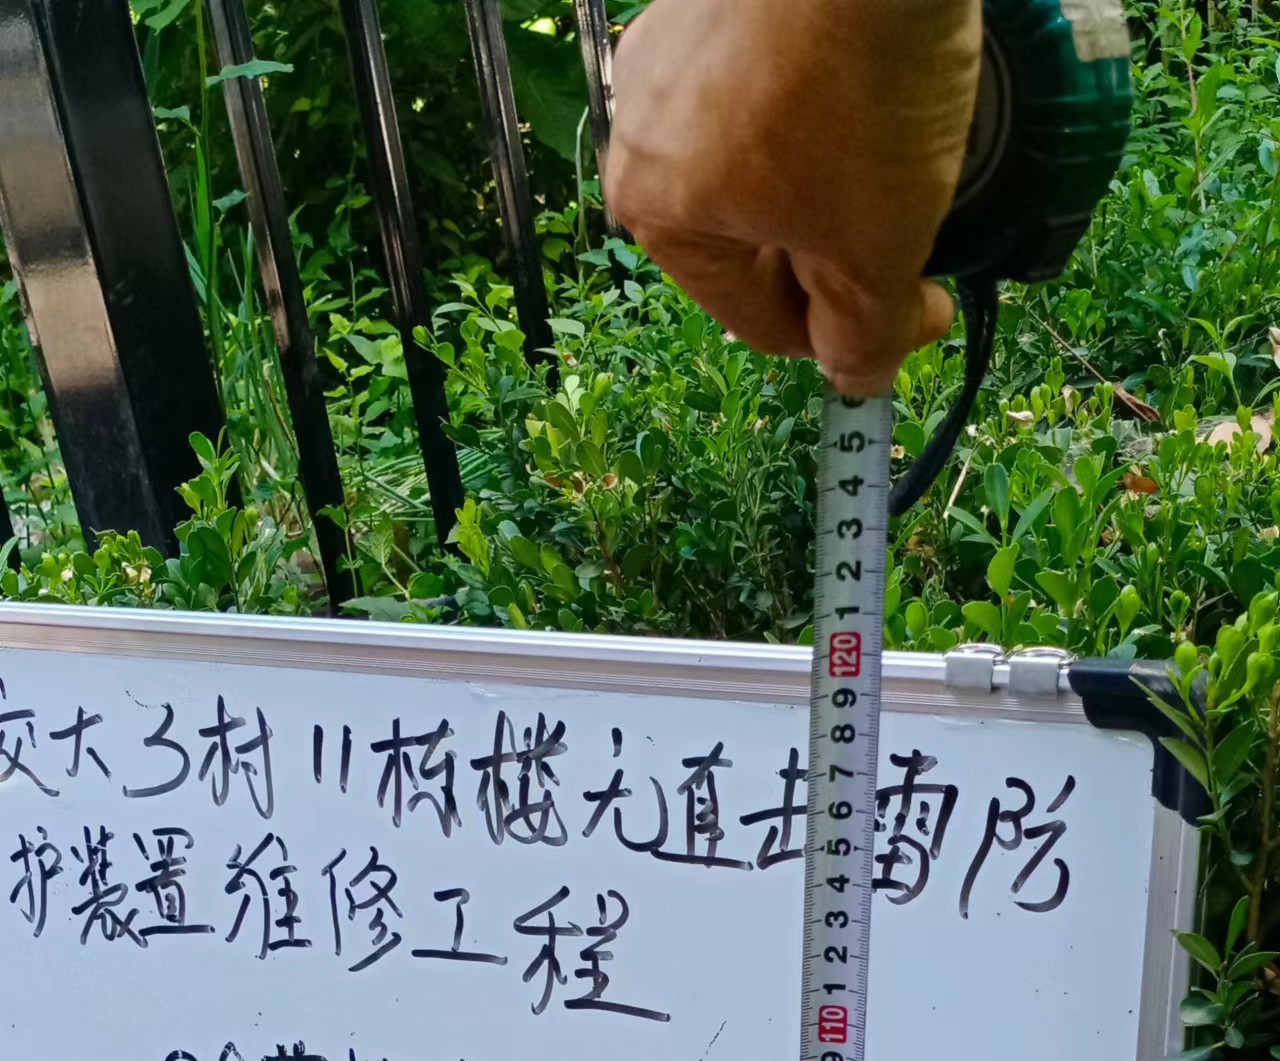 交大3村11栋楼无直击雷防
护装置维修工程
6
5
4
3
2
1
120
9
8
7
6
5
4
3
2
1
110
9